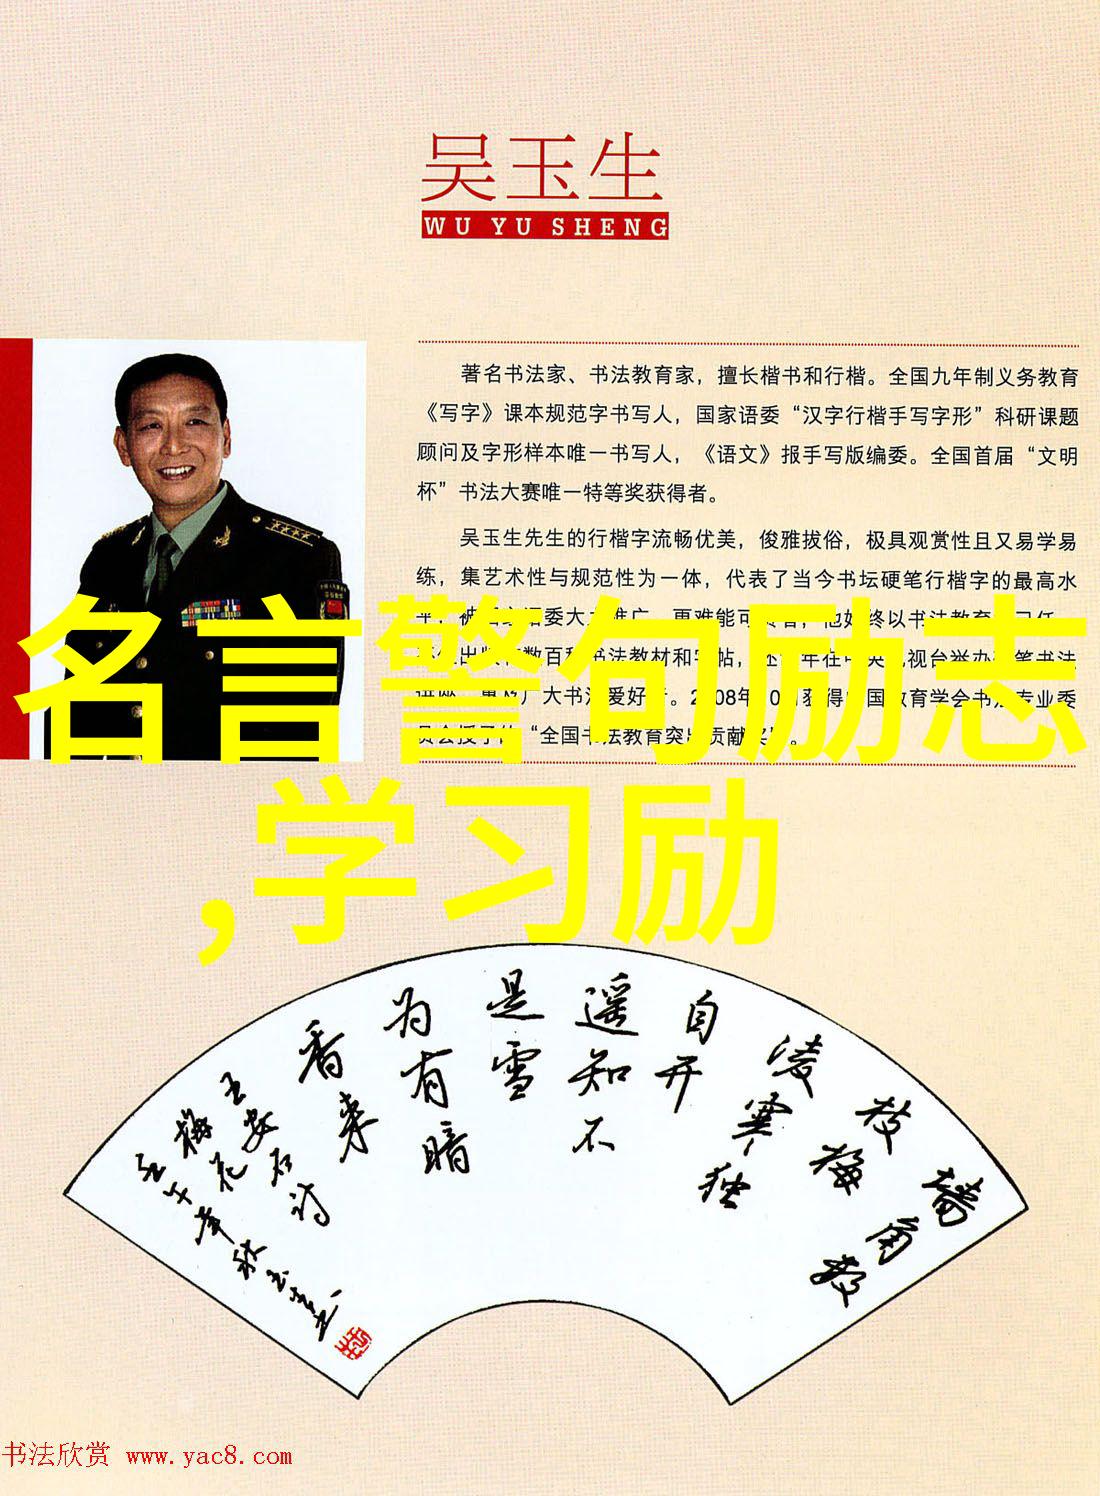 吴玉生
WU YU SHENG
著名书法家、书法教育家，擅长楷书和行楷。全国九年制义务教育
《写字》课本规范字书写人，国家语委“汉字行楷手写字形”科研课题
顾问及字形样本唯一书写人，《语文》报手写版编委。全国首届“文明
杯”书法大赛唯一特等奖获得者。
吴玉生先生的行楷字流畅优美，俊雅拔俗，极具观赏性且又易学易
练，集艺术性与规范性为一体，代表了当今书坛硬笔行楷字的最高水
语委大
推广
更难能可
他始终以书法教育
出版
数百种书法教材和字帖，
年在中央电视台举办
笔书法
广大书法爱好
。2008年10月获得中国教育学会书法专业委
“全国书法教育突出贡献奖”。
名言警句励志
,学习励
墙角数
枝梅
凌寒独
自开
遥知不
是雪
为有暗
香来
王安石诗
梅花
壬午年秋玉生书
书法欣赏 www.yac8.com